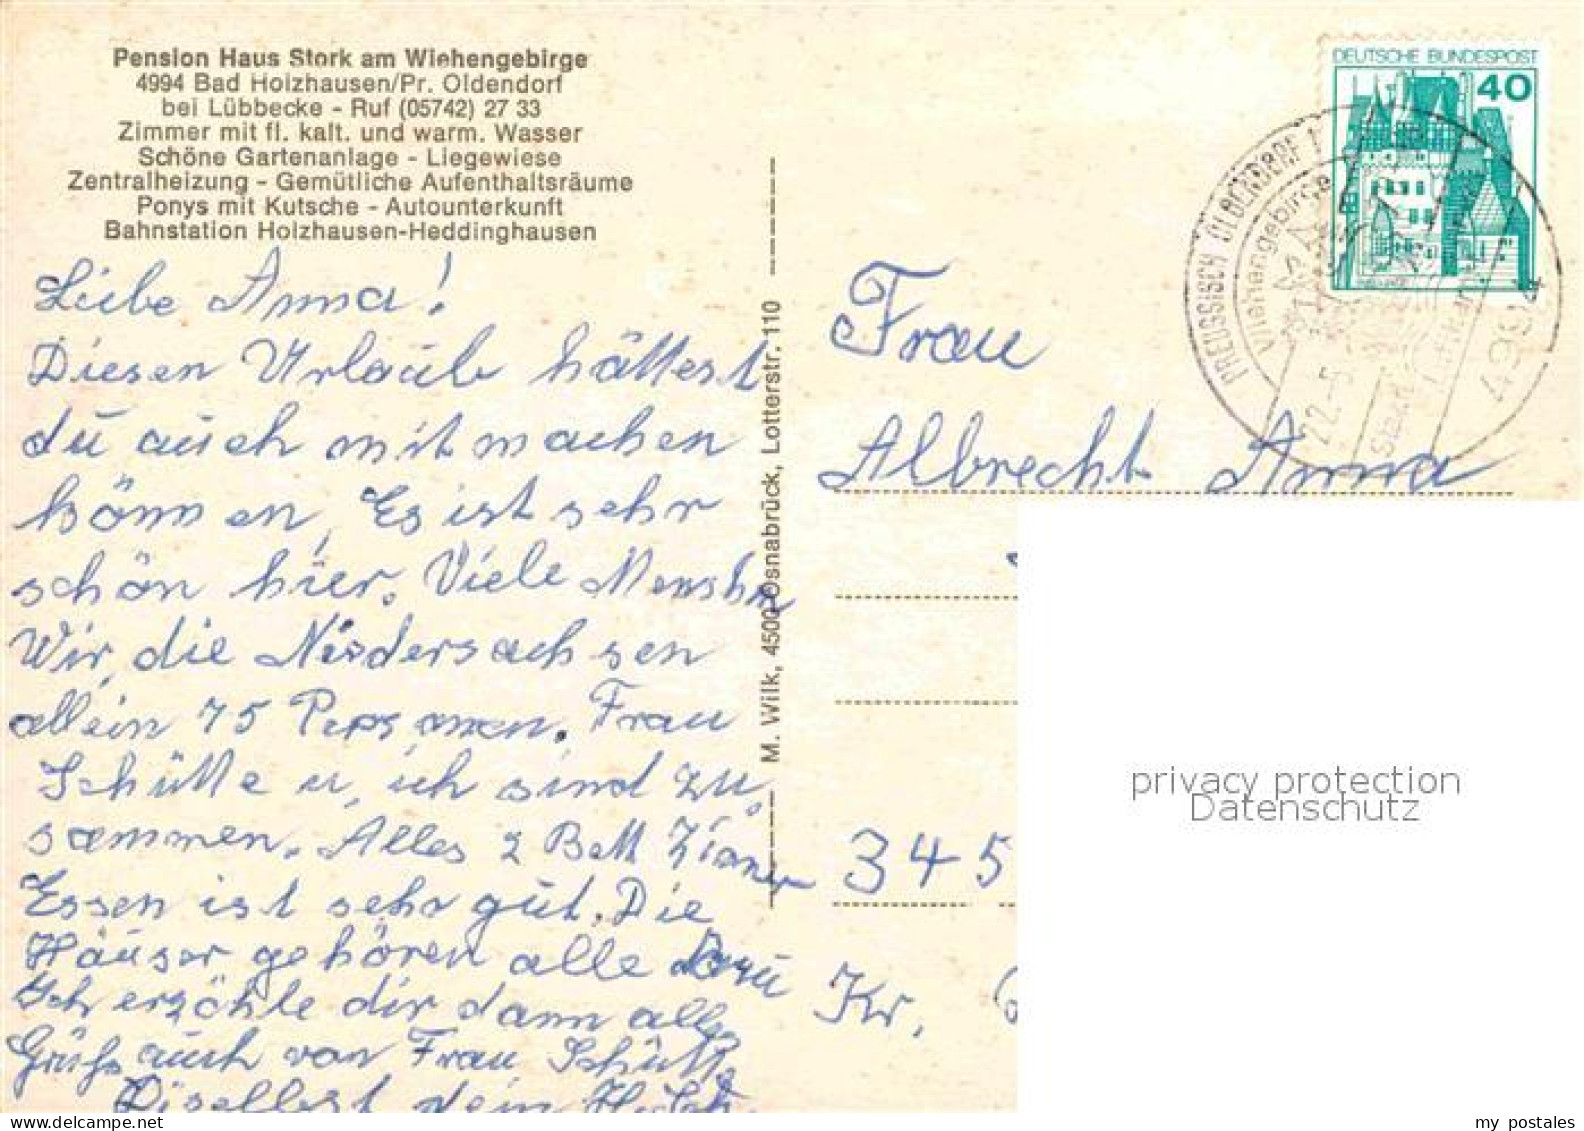 Pension Haus Stork am Wiehengebirge
4994 Bad Holzhausen/Pr. Oldendorf
bei Lübbecke - Ruf (05742) 27 33
Zimmer mit fl. kalt. und warm. Wasser
Schöne Gartenanlage - Liegewiese
Zentralheizung - Gemütliche Aufenthaltsräume
Ponys mit Kutsche - Autounterkunft
Bahnstation Holzhausen-Heddinghausen
Liebe Anna!
Diesen Urlaub hättest
du auch mitmachen
können, Es ist sehr
schön hier. Viele Menshn
Wir, die Niedersachsen
allein 75 Personen. Frau
Schütte u. ich sind zu,
sammen. Alles 2 Bett Zimer
Essen ist sehr gut. Die
Häuser gehören alle dazu
Ich erzähle dir dann alles
Grüße auch von Frau Schütte
dein H.
M. Wilk, 4500 Osnabrück, Lotterstr. 110
DEUTSCHE BUNDESPOST
40
PREUSSISCH OLDENDORF 1
Wiehengebirge
22.-5.
4994
Frau
Albrecht Anna
345
Kr.
privacy protection
Datenschutz
delcampe.net
my_postales